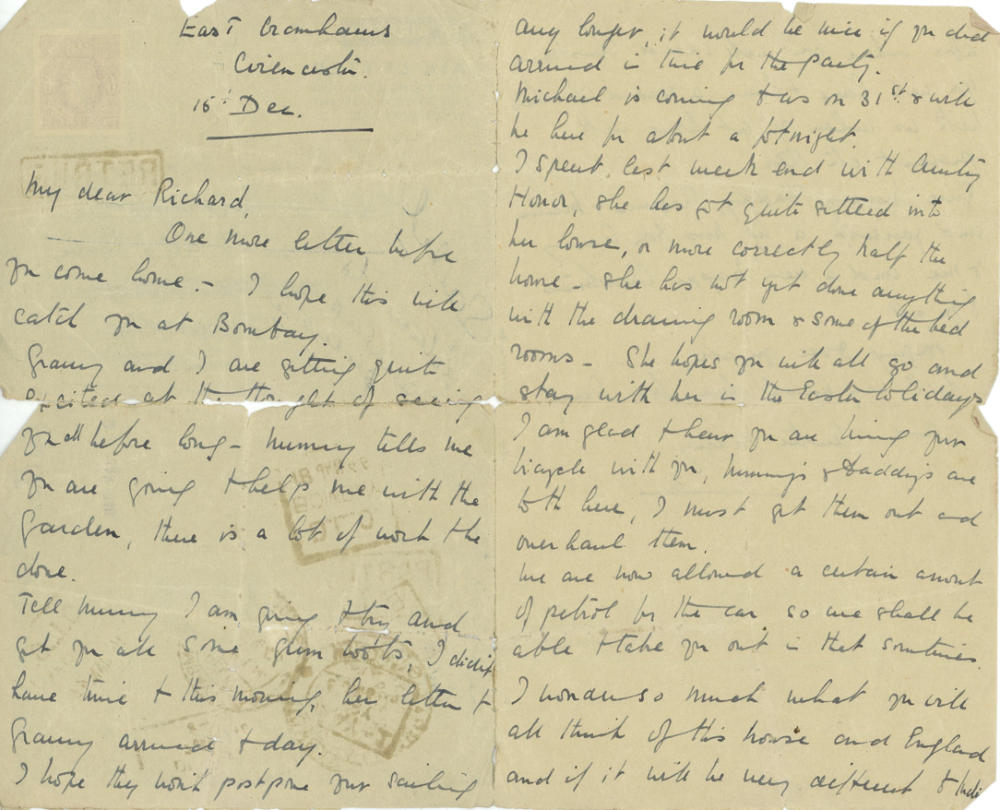 East Cromhams
Cirencester.
15t Dec.
My dear Richard,
One more letter before
you come home. - I hope this will
catch you at Bombay.
Granny and I are getting quite
excited at the thought of seeing
you all before long - Mummy tells me
you are going to help me with the
garden, there is a lot of work to be
done.
Tell Mummy I am going to try and
get you all some gum boots, I didn't
have time to this morning, her letter to
Granny arrived today.
I hope they won't postpone your sailing
any longer, it would be nice if you did
arrived in time for the party.
Michael is coming to us on 31st & will
be here for about a fortnight.
I spent last week end with Aunty
Honor, she has got quite settled into
her house, or more correctly half the
house - she has not yet done anything
with the drawing room & some of the bed
rooms - She hopes you will all go and
stay with her in the Easter holidays
I am glad to hear you are bring your
bicycle with you, Mummy's & Daddy's are
both here, I must get them out and
overhaul them.
We are now allowed a certain amount
of petrol for the car so we shall be
able to take you out in that sometimes.
I wonder so much what you will
all think of this house and England
and if it will be very different to Indi